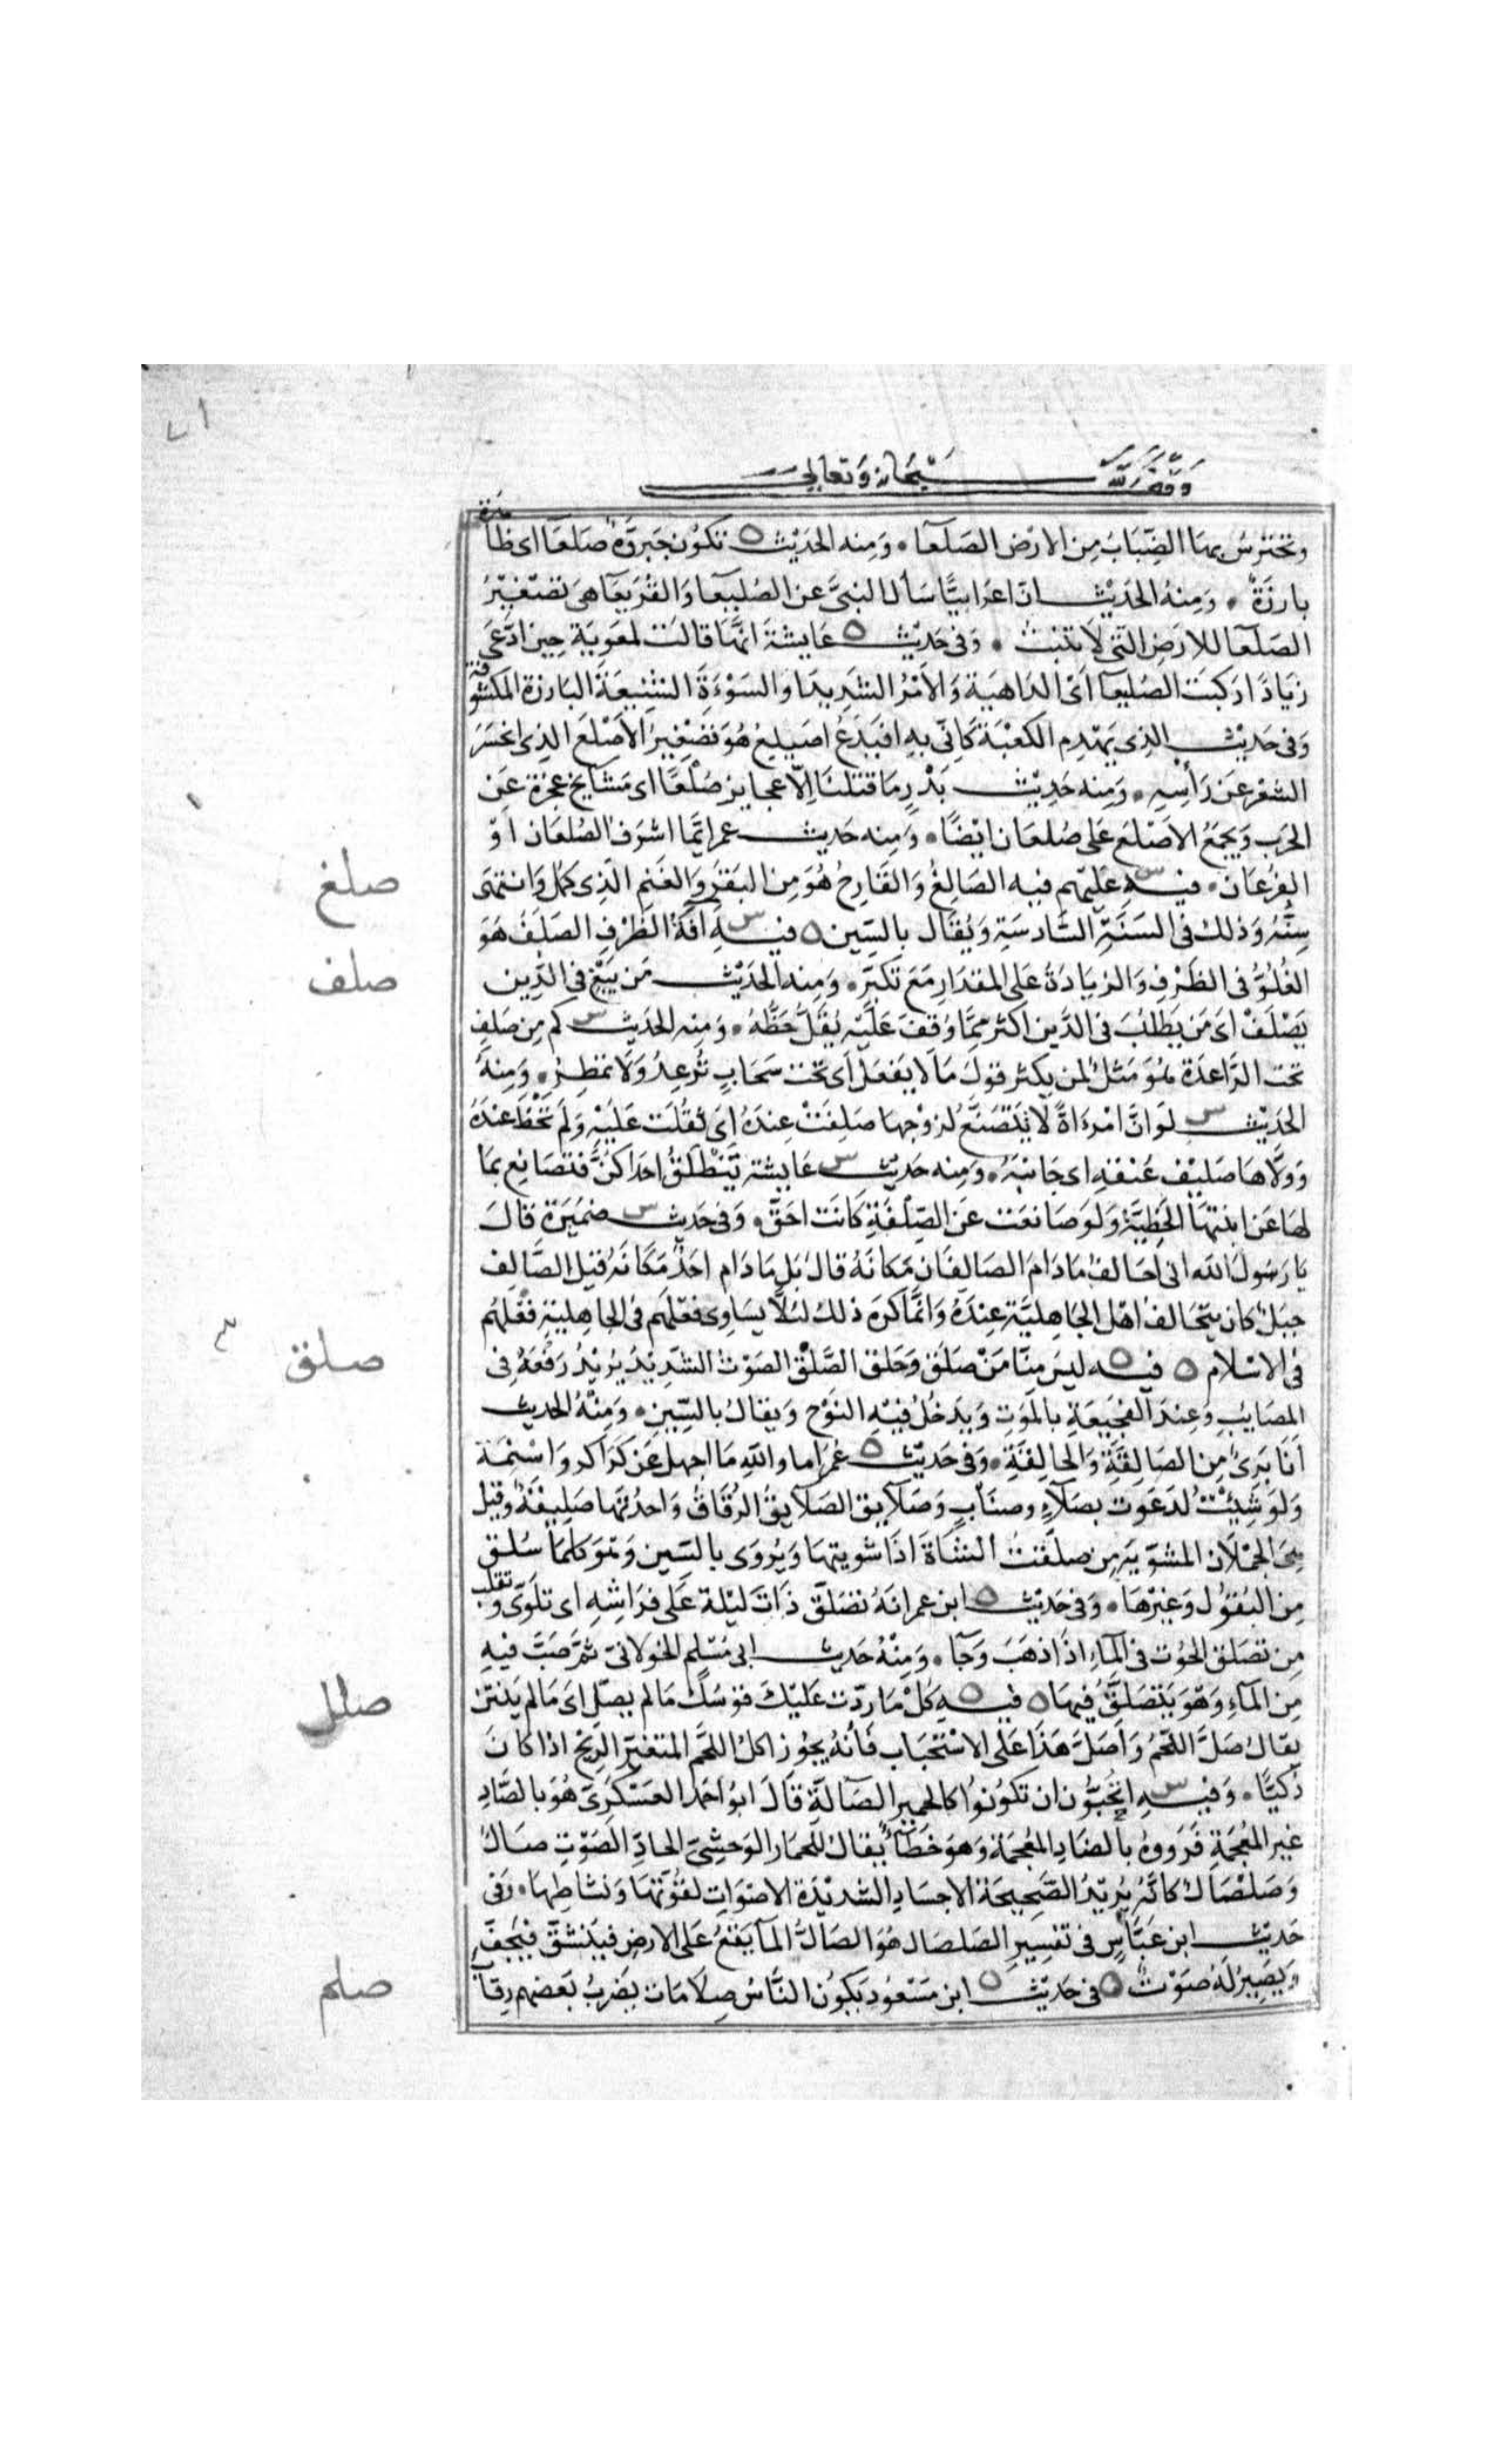 ٧١
وقف لله سبحانه وتعالى
وتحترش بها الضباب من الارض الصلعا ۰ ومنه الحديث ه تكون جبروة صلعا اى ظاهرة
بارزة ۰ ومنه الحديث ان اعرابيا سأل النبى عن الصليعا والقريعا هى تصغير
الصلعا للارض التى لا تنبت ۰ وفى حديث ه عايشة انها قالت لمعوية حين ادعى
زيادا ركبت الصليعا اى الداهية والامر الشديد او السوءة الشنيعة البارزة المكشوفة
وفى حديث الذى يهدم الكعبة كانى به افيدع اصيلع هو تصغير الاصلع الذى انحسر
الشعر عن رأسه ۰ ومنه حديث بدر ما قتلنا الا عجايز صلعا اى مشايخ عجزة عن
الحرب ويجمع الاصلع على صلعان ايضا ۰ ومنه حديث عمر ايما اشرف الصلعان او
الفرعان ۰ فيه س عليهم فيه الصالغ والقارح هو من البقر والغنم الذى كمل وانتهى
سنه وذلك فى السنة السادسة ويقال بالسين ه فيه س آفة الظرف الصلف هو
الغلو فى الظرف والزيادة على المقدار مع تكبر ۰ ومنه الحديث من يبغ فى الدين
يصلف اى من يطلب فى الدين اكثر مما وقف عليه يقل حظه ۰ ومنه الحديث س كم من صلف
تحت الراعدة هو مثل لمن يكثر قول ما لا يفعل اى تحت سحاب ترعد ولا تمطر ۰ ومنه
الحديث س لو ان امرءاة لا تتصنع لزوجها صلفت عنده اى ثقلت عليه ولم تحظ عنده
وولاها صليف عنقه اى جانبه ۰ ومنه حديث س عايشة تنطلق احداكن فتصانع بما
لها عن ابنتها الحظية ولو صانعت عن الصلفة كانت احق ۰ وفى حديث س ضميرة قال
يا رسول الله انى احالف ما دام الصالفان مكانه قال بل ما دام احد مكانه قيل الصالف
جبل كان يتحالف اهل الجاهلية عنده وانما كره ذلك لئلا يساوى فعلهم فى الجاهلية فعلهم
فى الاسلام ه فيه ه ليس منا من صلق وحلق الصلق الصوت الشديد يريد رفعه فى
المصايب وعند الفجيعة بالموت ويدخل فيه النوح ويقال بالسين ۰ ومنه الحديث
انا برئ من الصالقة والحالقة ۰ وفى حديث ه عمر اما والله ما اجهل عن كراكر واسنمة
ولو شئت لدعوت بصلاء وصناب وصلايق الصلايق الرقاق واحدتها صليقة وقيل
هى الحملان المشوية من صلقت الشاة اذا شويتها ويروى بالسين وهو كلما سلق
من البقول وغيرها ۰ وفى حديث ه ابن عمر انه تصلق ذات ليلة على فراشه اى تلوى وتقلب
من تصلق الحوت فى الماء اذا ذهب وجا ۰ ومنه حديث ابى مسلم الخولانى ثم صب فيه
من الماء وهو يتصلق فيها ه فيه ه كل ما ردت عليك قوسك ما لم يصل اى ما لم ينتن
يقال صل اللحم واصل هذا على الاستحباب فانه يجوز اكل اللحم المتغير الريح اذا كان
ذكيا ۰ وفيه س اتحبون ان تكونوا كالحمير الصالة قال ابو احمد العسكرى هو بالصاد
غير المعجمة فرووه بالضاد المعجمة وهو خطأ يقال للحمار الوحشى الحاد الصوت صال
وصلصال كانه يريد الصحيحة الاجساد الشديدة الاصوات لقوتها ونشاطها ۰ وفى
حديث ابن عباس فى تفسير الصلصال هو الصال الما يقع على الارض فينشق فيجف
ويصير له صوت ه فى حديث ه ابن مسعود يكون الناس صلامات يضرب بعضهم رقاب
صلغ
صلف
صلق
صلل
صلم